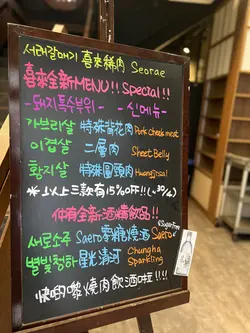 서래갈매기 喜來稀肉 Seorae
喜來全新MENU!! Special!!
-돼지특수부위- -신메뉴-
가브리살 特殊背花肉 Pork cheek meat
이겹살 二層肉 Sheet Belly
항지살 特殊圓頭肉 Huangjisal
*以上三款有15%OFF!! (~30/6)
仲有全新酒精飲品!!
*Sugar Free
새로소주 Saero零糖燒酒 Saero
별빛청하 星光清河 Chungha Sparkling
快啲嚟燒肉飲酒啦!!!